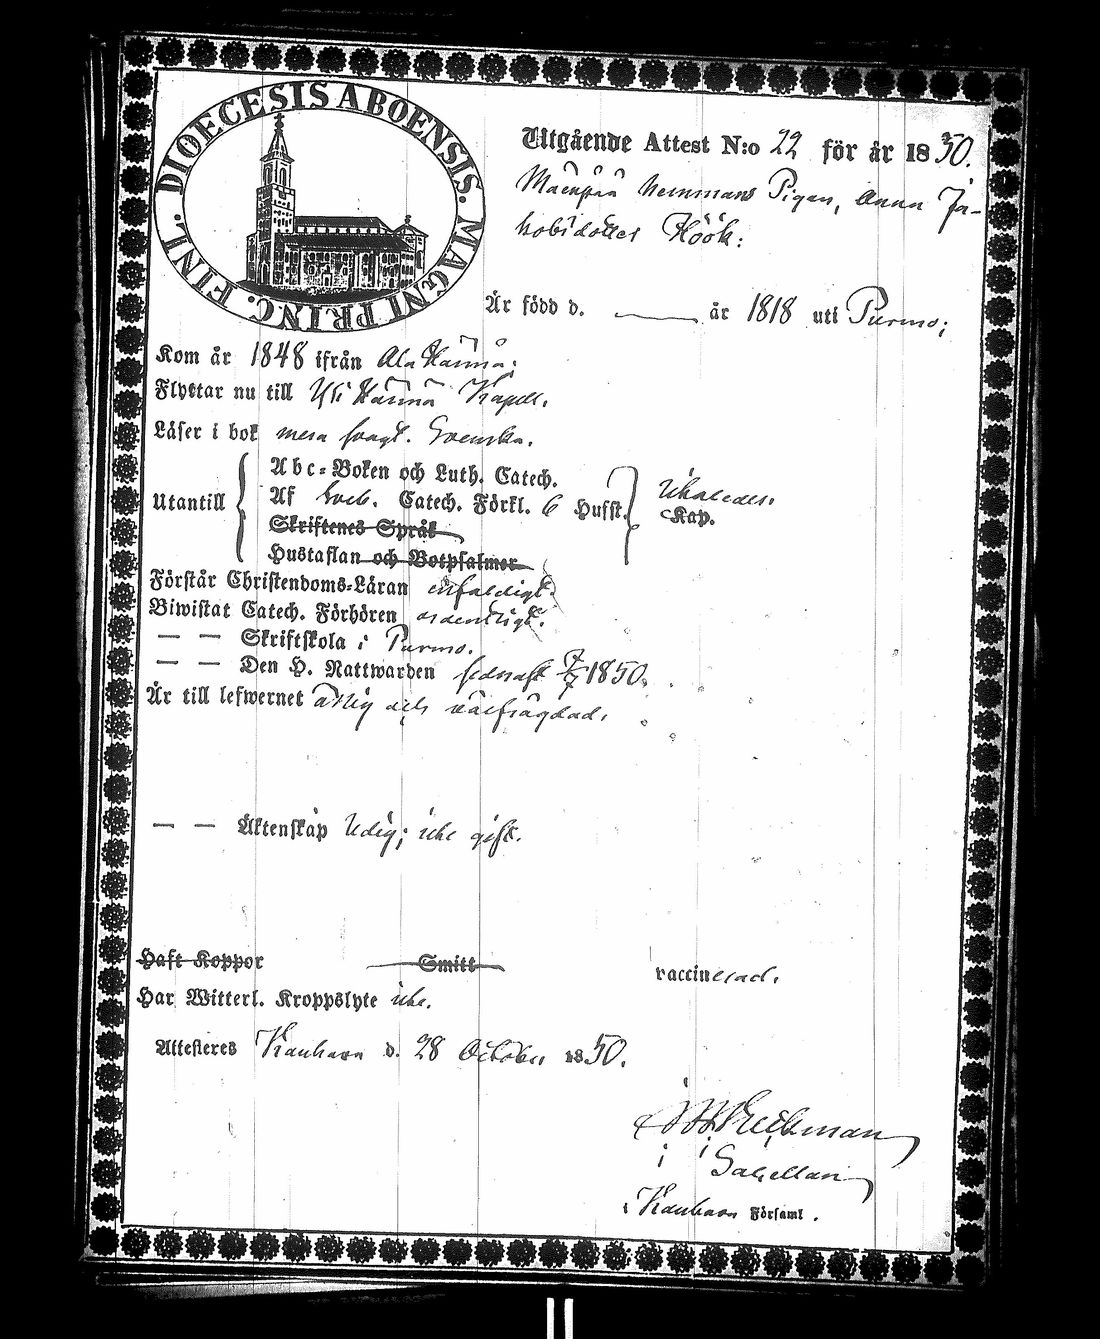 DIOECESIS ABOENSIS. MAGNI PRINC. FINL.
Utgående Attest N:o 22 för år 1850.
Mäenpää Hemmans Pigan, Anna Ja-
kobsdotter Höök:
Är född d. — år 1818 uti Purmo;
Kom år 1848 ifrån Ala Härmä;
Flyttar nu till Yli Härmä Kapell.
Läser i bok mera svagt. Svenska.
Utantill
Abc-Boken och Luth. Catech.
Af Sveb. Catech. Förkl. 6 Husst.
Kap.
Skriftenes Språk
Hustaflan och Botpsalmer
Förstår Christendoms-Läran enfaldigt.
Biwistat Catech. Förhören ordentligt.
— — Skriftskola i Purmo.
— — Den H. Nattwarden sednast 1850.
Är till lefwernet ärlig och välfrägdad.
— — Äktenskap ledig; icke gift.
Haft Koppor Smitt vaccinerad.
Har Witterl. Kroppslyte icke.
Attesteres Kauhava d. 28 October 1850.
Sacellan
i Kauhava Församl.